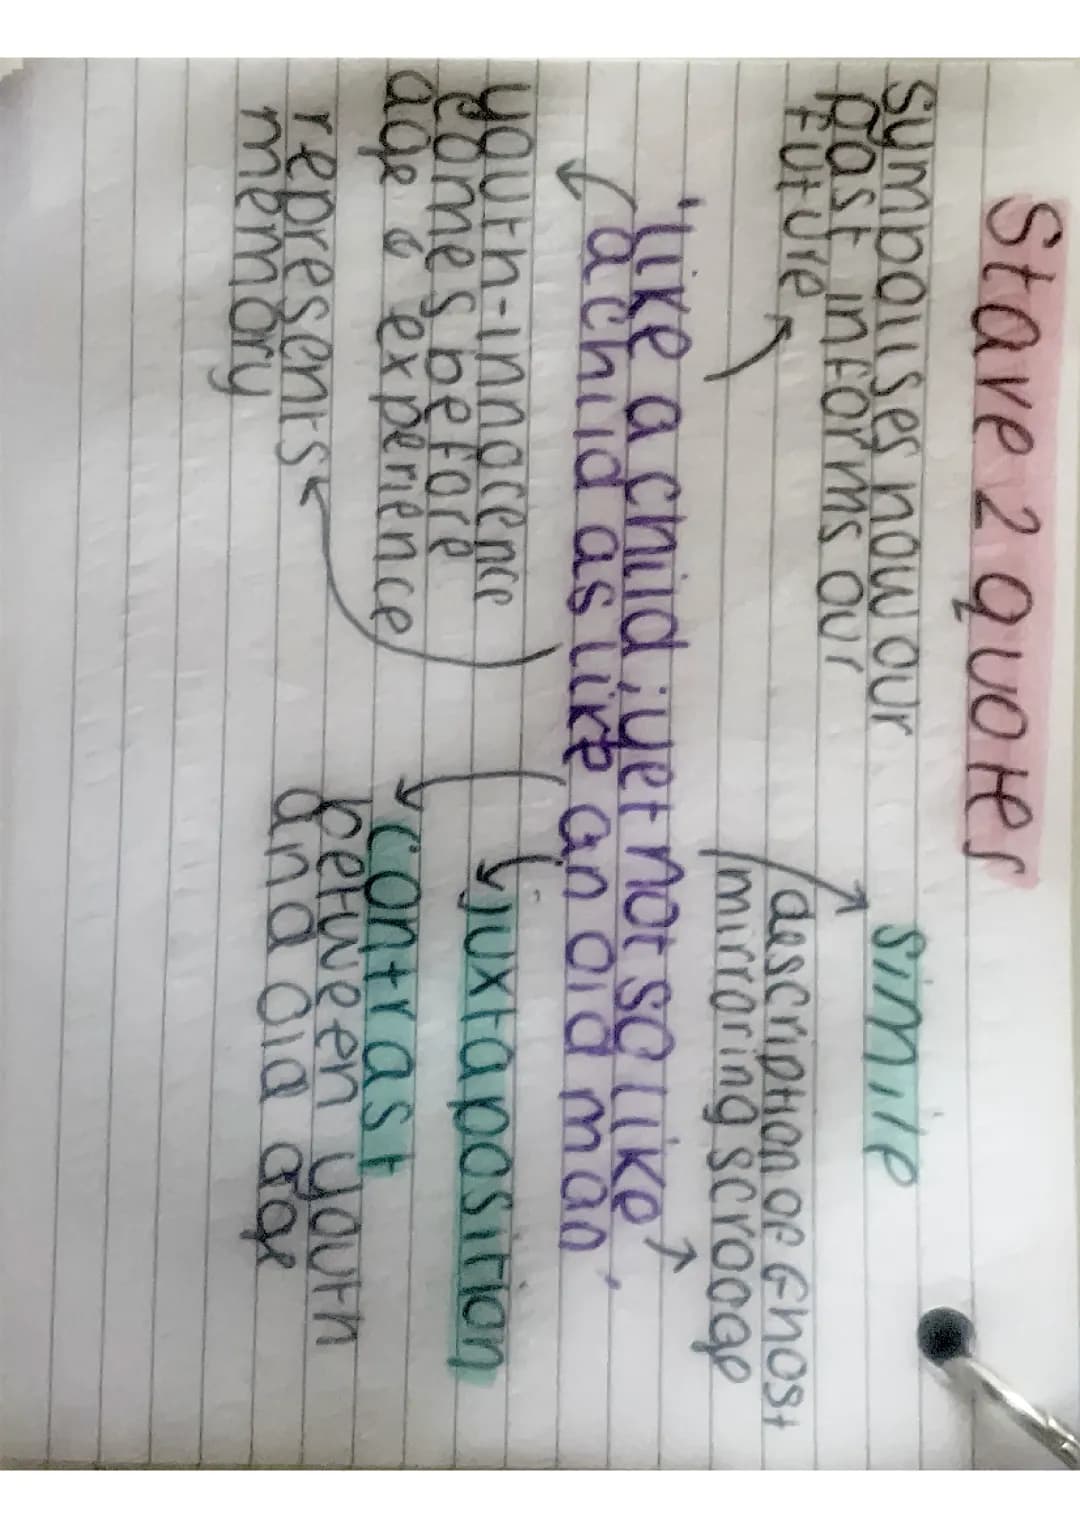 Stave 2 quotes
symbolises how our
past informs our
future
simile
description of Ghost
mirroring scrooge
'like a child ; yet not so like
a child as like an old man'
youth-innocence
comes before
age & experience
represents
memory
juxtaposition
contrast
between youth
and old age